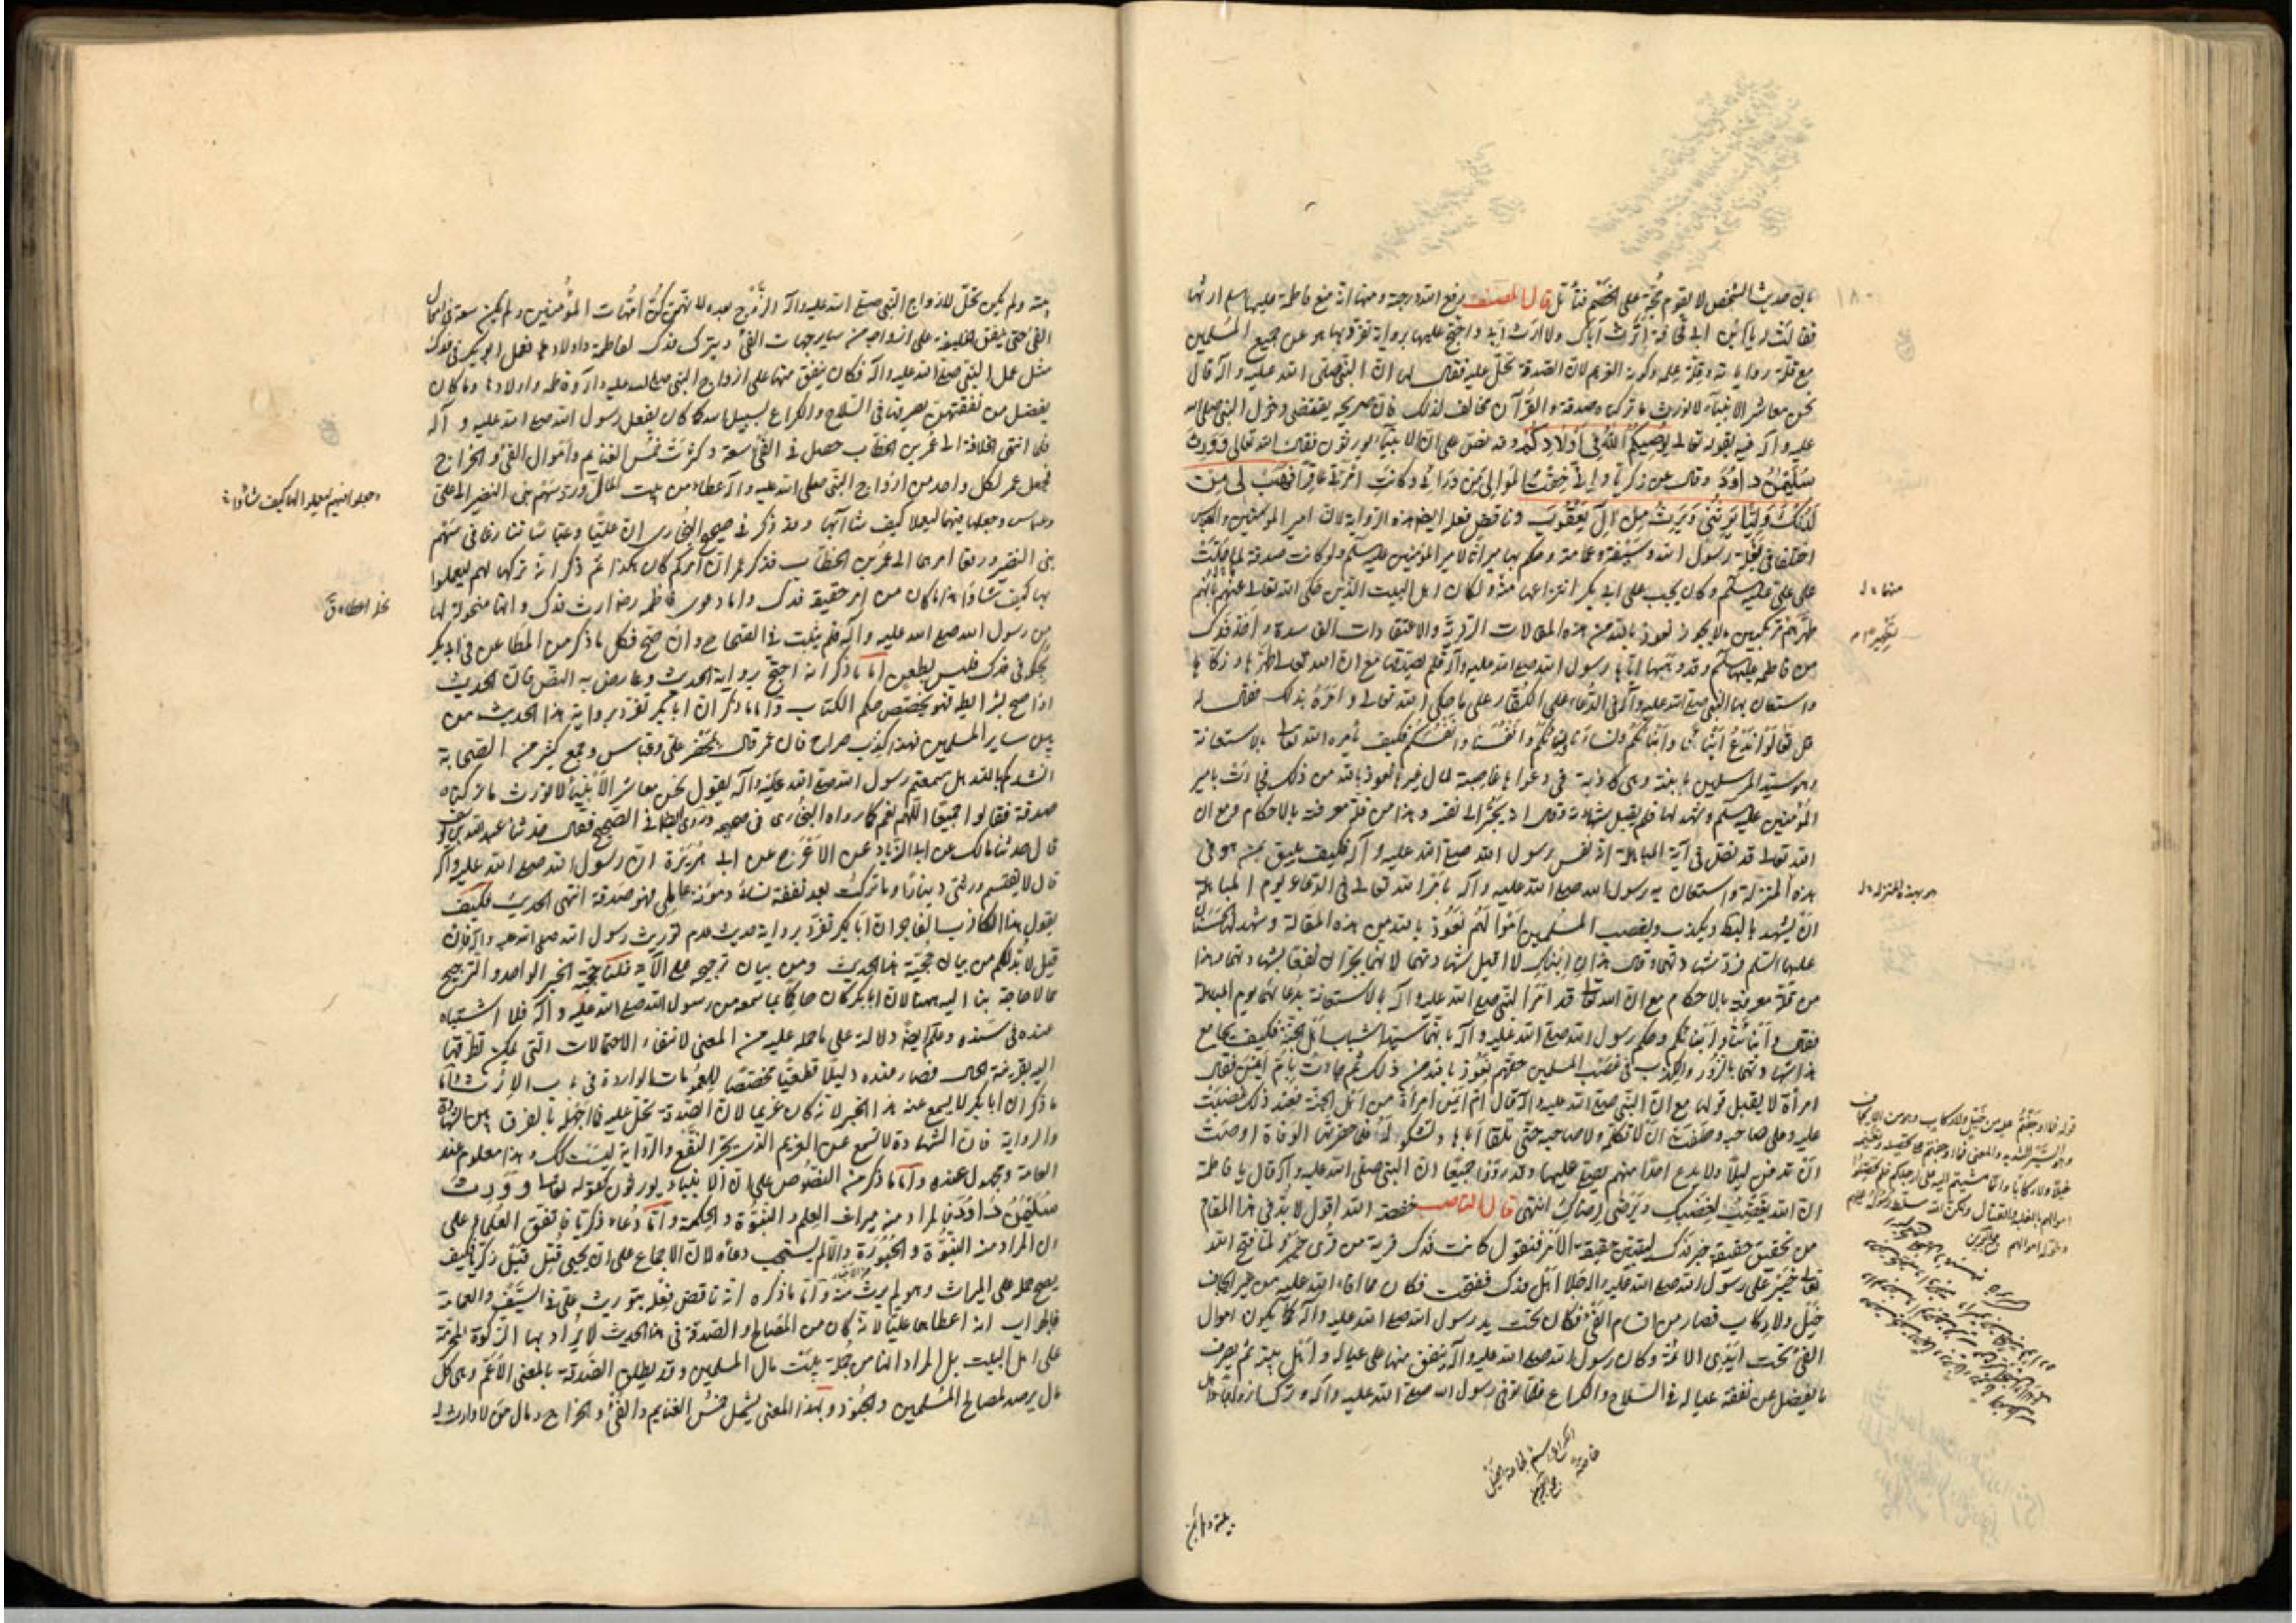 بان حديث الشخص لا يقوم حجة على الخصم فتأمل قال المصنف رفع الله درجته ومنها انه منع فاطمة عليها السلم ارثها
فقالت له يا ابن ابي قحافة اترث اباك ولا ارث ابي واحتج عليها برواية تفرد بها هو عن جميع المسلمين
مع قلة رواياته وقلة علمه وكونه الغريم لان الصدقة تحل عليه فقال لها ان النبي صلى الله عليه وآله قال
نحن معاشر الانبياء لا نورث ما تركناه صدقة والقرآن مخالف لذلك فان صريحه يقتضي دخول النبي صلى الله
عليه وآله فيه بقوله تعالى يوصيكم الله في اولادكم وقد نص على ان الانبياء يورثون فقال الله تعالى وورث
سليمن داود وقال عن زكريا واني خفت الموالي من ورائي وكانت امرأتي عاقرا فهب لي من
لدنك وليا يرثني ويرث من ال يعقوب وناقض فعله ايضا هذه الرواية لان امير المؤمنين والعباس
اختلفا في بغلة رسول الله وسيفه وعمامته وحكم بها ميراثا لامير المؤمنين عليه السلم ولو كانت صدقة لما حلت
على علي عليه السلم وكان يجب على ابي بكر انتزاعها منه ولكان اهل البيت الذين حكى الله تعالى عنهم بانه
طهرهم مرتكبين ما لا يجوز نعوذ بالله من هذه المقالات الردية والاعتقادات الفاسدة واخذ فدك
من فاطمة عليها السلم وقد وهبها اياها رسول الله صلى الله عليه وآله فلم يصدقها مع ان الله تعالى طهرها وزكاها
واستعان بها النبي صلى الله عليه وآله في الدعاء على الكفار على ما حكى الله تعالى وامره بذلك فقال له
قل تعالوا ندع ابناءنا وابناءكم ونساءنا ونساءكم وانفسنا وانفسكم فكيف يأمره الله تعالى بالاستعانة
وهو سيد المرسلين بابنته وهي كاذبة في دعواها غاصبة لمال غيرها نعوذ بالله من ذلك فجاءت بامير
المؤمنين عليه السلم وشهد لها فلم يقبل شهادته وقال انه يجر الى نفسه وهذا من قلة معرفته بالاحكام ومع ان
الله تعالى قد نص في آية المباهلة انه نفس رسول الله صلى الله عليه وآله فكيف يليق بمن هو في
هذه المنزلة واستعان به رسول الله صلى الله عليه وآله بامر الله تعالى في الدعاء يوم المباهلة
ان يشهد بالباطل ويكذب ويغصب المسلمين اموالهم نعوذ بالله من هذه المقالة وشهد لها الحسنان
عليهما السلم فرد شهادتهما وقال هذان ابناك لا اقبل شهادتهما لانهما يجران نفعا بشهادتهما وهذا
من قلة معرفته بالاحكام مع ان الله تعالى قد امر النبي صلى الله عليه وآله بالاستعانة بدعائهما يوم المباهلة
فقال وابناءنا وابناءكم وحكم رسول الله صلى الله عليه وآله بانهما سيدا شباب اهل الجنة فكيف يجامع
هذا شهادتهما بالزور والكذب في غصب المسلمين حقهم نعوذ بالله من ذلك ثم جاءت بام ايمن فقال
امرأة لا يقبل قولها مع ان النبي صلى الله عليه وآله قال ام ايمن امرأة من اهل الجنة فعند ذلك غضبت
عليه وعلى صاحبه وحلفت ان لا تكلمه ولا صاحبه حتى تلقى اباها وتشكو له فلما حضرتها الوفاة اوصت
ان تدفن ليلا ولا يدع احدا منهم يصلي عليها وقد رووا جميعا ان النبي صلى الله عليه وآله قال يا فاطمة
ان الله يغضب لغضبك ويرضى لرضاك انتهى قال الناصب خفضه الله اقول لا بد في هذا المقام
من تحقيق حقيقة خبر فدك ليتبين حقيقة الامر فنقول كانت فدك قرية من قرى خيبر ولما فتح الله
تعالى خيبر على رسول الله صلى الله عليه وآله جلا اهل فدك ففتحت فكان مما افاء الله عليه من غير ايجاف
خيل ولا ركاب فصار من اقسام الفيء فكان تحت يد رسول الله صلى الله عليه وآله كما يكون اموال
الفيء تحت ايدي الائمة وكان رسول الله صلى الله عليه وآله ينفق منها على عياله واهل بيته ثم يصرف
ما يفضل عن نفقة عياله في السلاح والكراع فلما توفي رسول الله صلى الله عليه وآله وترك ازواجا واهل
١٨٠
بيته ولم يكن تحل لازواج النبي صلى الله عليه وآله التزوج بعده لانهن كن امهات المؤمنين ولم يكن سعة في اموال
الفيء حتى ينفق الخليفة على ازواجه من ساير جهات الفيء ويترك فدك لفاطمة واولادها فعمل ابو بكر في فدك
مثل عمل النبي صلى الله عليه وآله فكان ينفق منها على ازواج النبي صلى الله عليه وآله وفاطمة واولادها وما كان
يفضل من نفقتهن يصرفها في السلاح والكراع لسبيل الله كما كان يفعل رسول الله صلى الله عليه وآله
فلما انتهى الخلافة الى عمر بن الخطاب حصل في الفيء سعة وكثرت خمس الغنايم واموال الفيء والخراج
فجعل عمر لكل واحد من ازواج النبي صلى الله عليه وآله عطاء من بيت المال ورد سهم بني النضير الى علي
وعباس وجعلها بينهما ليعملا كيف شاآ بها وقد ذكر في صحيح البخاري ان عليا وعباسا تنازعا في سهم
بني النضير ورفعا امرهما الى عمر بن الخطاب فذكر عمر ان امركم كان هكذا ثم ذكر انه تركها لهم ليعملوا
بها كيف شاؤا هذا ما كان من امر حقيقة فدك واما دعوى فاطمة رض ارث فدك وانها منحولة لها
من رسول الله صلى الله عليه وآله فلم يثبت في الصحاح وان صح فكل ما ذكر من المطاعن في ابي بكر
بحكمه في فدك فليس بطعن اما ما ذكر انه احتج برواية الحديث وعارض به النص فان الحديث
اذا صح بشرايطه فهو يخصص حكم الكتاب واما ما ذكر ان ابا بكر تفرد برواية هذا الحديث من
بين ساير المسلمين فهذا كذب صراح فان عمر قال بمحضر علي وعباس وجمع كثير من الصحابة
انشدكم بالله هل سمعتم رسول الله صلى الله عليه وآله يقول نحن معاشر الانبياء لا نورث ما تركناه
صدقة فقالوا جميعا اللهم نعم كما رواه البخاري في صحيحه وروى ايضا في الصحيح فقال حدثنا عبد الله بن يوسف
قال حدثنا مالك عن ابي الزناد عن الاعرج عن ابي هريرة ان رسول الله صلى الله عليه وآله
قال لا يقتسم ورثتي دينارا وما تركت بعد نفقة نسائي ومؤنة عاملي فهو صدقة انتهى الحديث فكيف
يقول هذا الكاذب الفاجر ان ابا بكر تفرد برواية حديث عدم توريث رسول الله صلى الله عليه وآله فان
قيل لا بد لكم من بيان حجية هذا الحديث ومن بيان ترجيحه على الآية قلنا حجية الخبر الواحد والترجيح
مما لا حاجة بنا اليه ههنا لان ابا بكر كان حاكما بما سمعه من رسول الله صلى الله عليه وآله فلا اشتباه
عنده في سنده وعلم ايضا دلالته على ما حمله عليه من المعنى لانتفاء الاحتمالات التي يمكن تطرقها
اليه بقرينة الحال فصار عنده دليلا قطعيا مخصصا للعمومات الواردة في باب الارث واما
ما ذكر ان ابا بكر لا يسمع عنه هذا الخبر لانه كان غريما لان الصدقة تحل عليه فما اجهله بالفرق بين الشهادة
والرواية فان الشهادة لا تسمع عن الغريم الذي يجر النفع والرواية ليست كذلك وهذا معلوم عند
العامة ومجهول عنده واما ما ذكر من النصوص على ان الانبياء يورثون كقوله تعالى وورث
سليمن داود فالمراد منه ميراث العلم والنبوة والحكمة واما دعاء زكريا فاتفق العلماء على
ان المراد منه النبوة والحبورة والا لم يستجب دعاؤه لان الاجماع على ان يحيى قتل قبل زكريا فكيف
يصح حمله على الميراث وهو لم يرث منه واما ما ذكره انه ناقض فعله بتوريث علي في السيف والعمامة
فالجواب انه اعطاها عليا لانه كان من المصالح والصدقة في هذا الحديث لا يراد بها الزكوة المحرمة
على اهل البيت بل المراد انها من جملة بيت مال المسلمين وقد يطلق الصدقة بالمعنى الاعم وهي كل
مال يرصد لمصالح المسلمين والجنود وبهذا المعنى يشمل خمس الغنايم والفيء والخراج ومال من لا وارث له